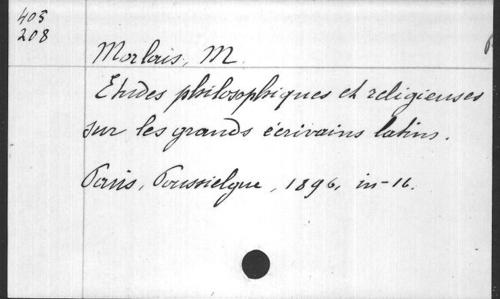 405
208
Morlais, M.
Etudes philosophiques et religieuses
sur les grands écrivains latins.
Paris, Poussielgue, 1896, in-16.